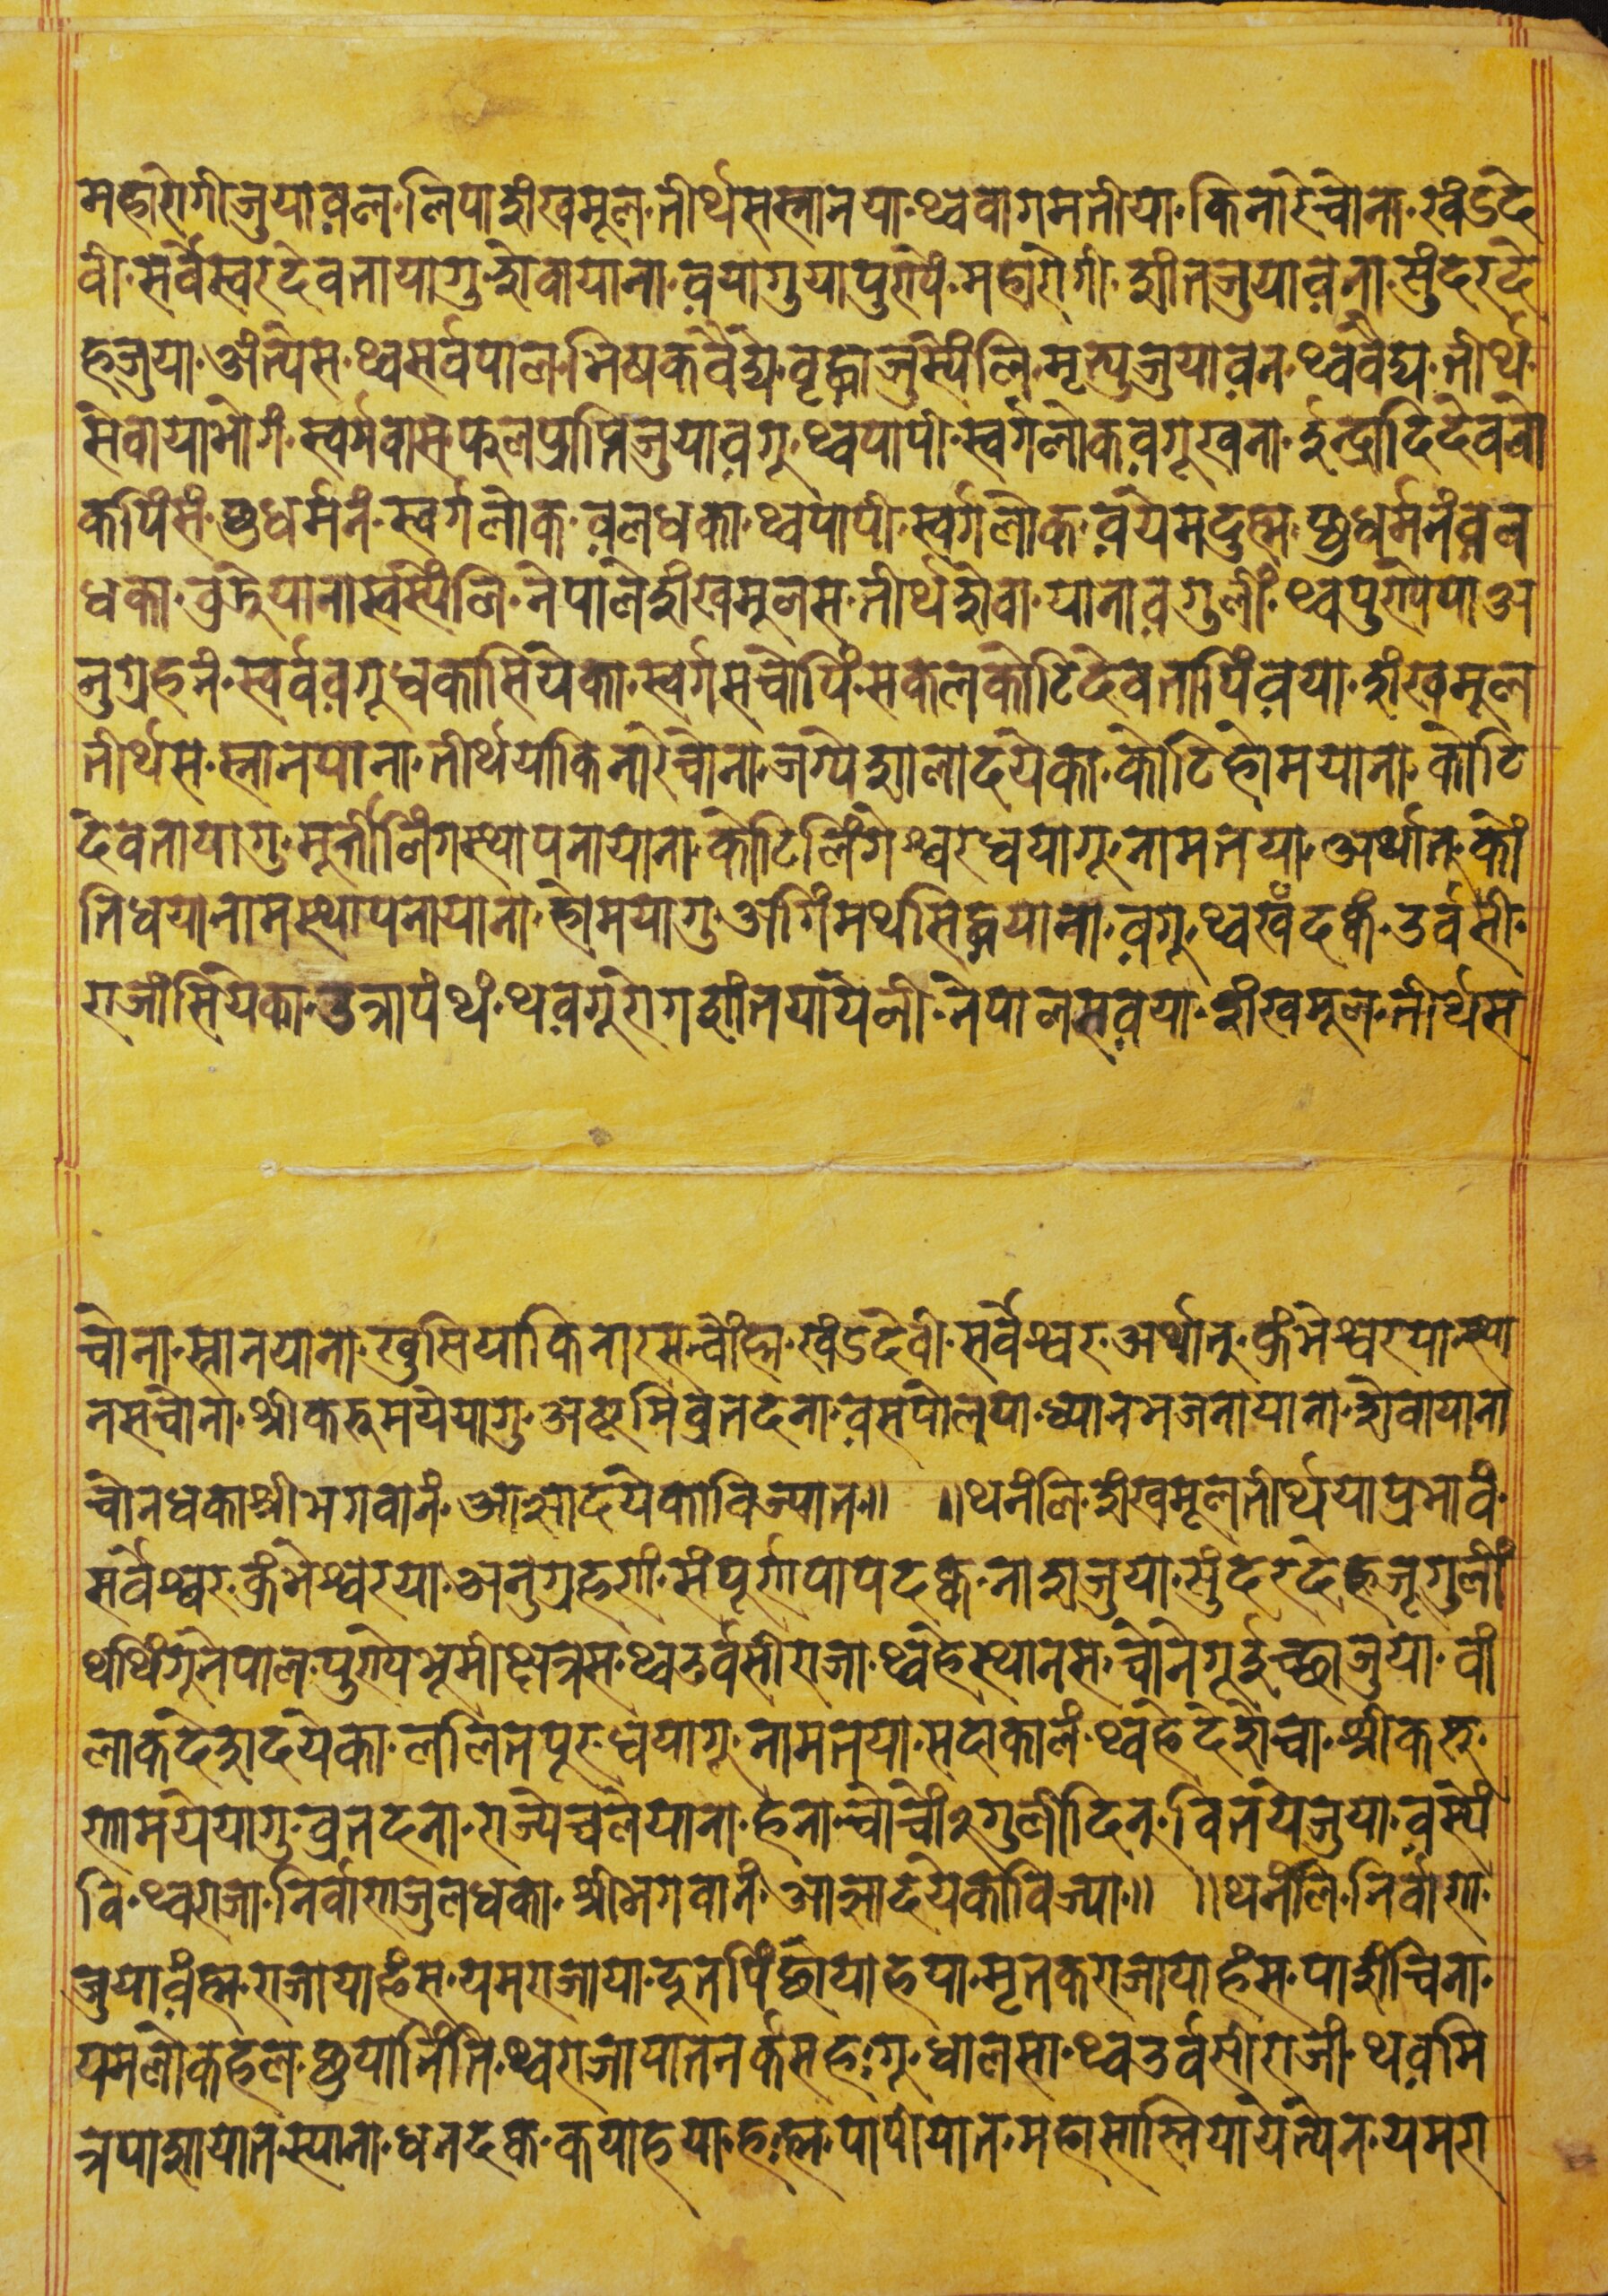 महारोगीजुयाव़ल·लिपाशंखमूल·तीर्थसस्नानया·थ्ववागमतीया·किनारेचोना·खंडदे
वी·सर्वेस्वरदेवतायागु·शेवायाना·व़यागुयापुरापें·महारोगी·शांतजुयाव़ना·सुंदरदे
हजुया·अंत्येस·थ्वसर्वपाल·भिषकवैद्ये·वृद्धाजुस्येंलि·मृत्युजुयाव़न·थ्ववैद्य·तीर्थ·
सेवायाभोगं·स्वर्गवास·फलप्राप्तिजुयाव़गू·थ्वपापी·स्वर्गलोकव़गूखना·ईन्द्रादिदेवलो
कपिंसं·छुधर्मनं·स्वर्गलोक·व़लधका·थ्वपापी·स्वर्गलोक·व़येमदुह्म·छुधर्मनंव़ल
धका·वुझेयानास्वस्येंलि·नेपालेशंखमूलस·तीर्थशेवा·यानाव़गुलीं·थ्वपुरापेया·अ
नुग्रहनं·स्वर्वव़गूधकासियेका·स्वर्गसचोपिं·सकलकोटिदेवतापिंव़या·शंखमूल
तीर्थस·स्नानयाना·तीर्थयाकिनारेचोना·जग्येशालादयेका·कोटिहोमयाना·कोटि
देवतायागु·मूर्तीलिंगस्थापनायाना·कोटिलिंगेश्वरधयागू·नामतया·अर्थात्·कों
तिधयानामस्थापनायाना·होमयागु·अगिंमथसिद्धयाना·व़गू·थ्वखँदक्वं·उर्वसी·
राजांसियेका·उत्रापंथं·थव़गूरोगशांतयायेली·नेपालसव़या·शंखमूल·तीर्थस
चोना·स्नानयाना·खुसियाकिनारसचोंह्म·खंडदेवी·सर्वेश्वर·अर्थात्·कुंभेश्वरयास्था
नसचोना·श्रीकरुमययागु·अष्टमिव्रतदना·व़सपोलया·ध्यानभजनायाना·शेवायाना
चोनधकाश्रीभगवानं·आज्ञादयेकाविज्यात॥ ॥थनंलि·शंखमूलतीर्थयाप्रभावं·
सर्वेश्वर·कुंभेश्वरया·अनुग्रहणं·संपूर्णपापदक्व·नाशजुया·सुंदरदेहजूगुलीं
थथिंगूनेपाल·पुरापेभूमीक्षेत्रस·थ्वउर्वसीराजा·थ्वहेस्थानस·चोनेगूईच्छाजुया·वां
लाकदेशदयेका·ललितपूरधयागू·नामतया·सदाकालं·थ्वहेदेशेचा·श्रीकरु·
णामययागु·व्रतदना·राज्येचलेयाना·हना·चोचों२गुणीदिन्·वितयेजुया·व़स्पें
वि·थ्वराजा·निर्वाणजुलधका·श्रीभगवानं·आज्ञादयेकाविज्या॥ ॥थनंलि·निर्वाण
जुयाव़ंह्म·राजायाहंस·यमराजाया·दूतपिंछोयाहया·मृतकराजायाहंस·पाशंचिना·
यमलोकेहल·छुयानिंतिं·थ्वराजायातनर्कसहःगू·धालसा·थ्वउर्वसीराजां·थव़मि
त्रपाज्ञायातस्याना·धनदक्व·कयाहयाःहःह्म·पापीयात·महासास्तियायेत्येन·यमरा